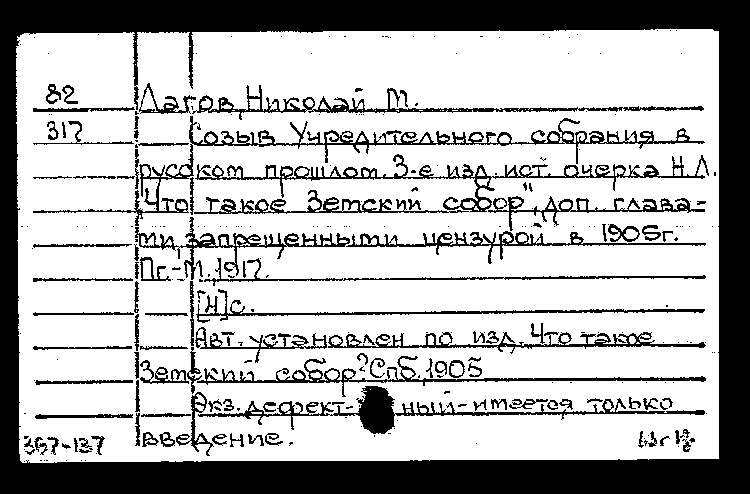 82 Лагов, Николай М.
317 Созыв Учредительного собрания в
русском прошлом. 3-е изд. ист. очерка Н.Л.
"Что такое Земский собор", доп. глава-
ми, запрещенными цензурой в 1905г.
Пг.-М., 1917.
[4]с.
Авт. установлен по изд. Что такое
Земский собор? Спб., 1905
Экз. дефект- ный-имеется только
367-137 введение.